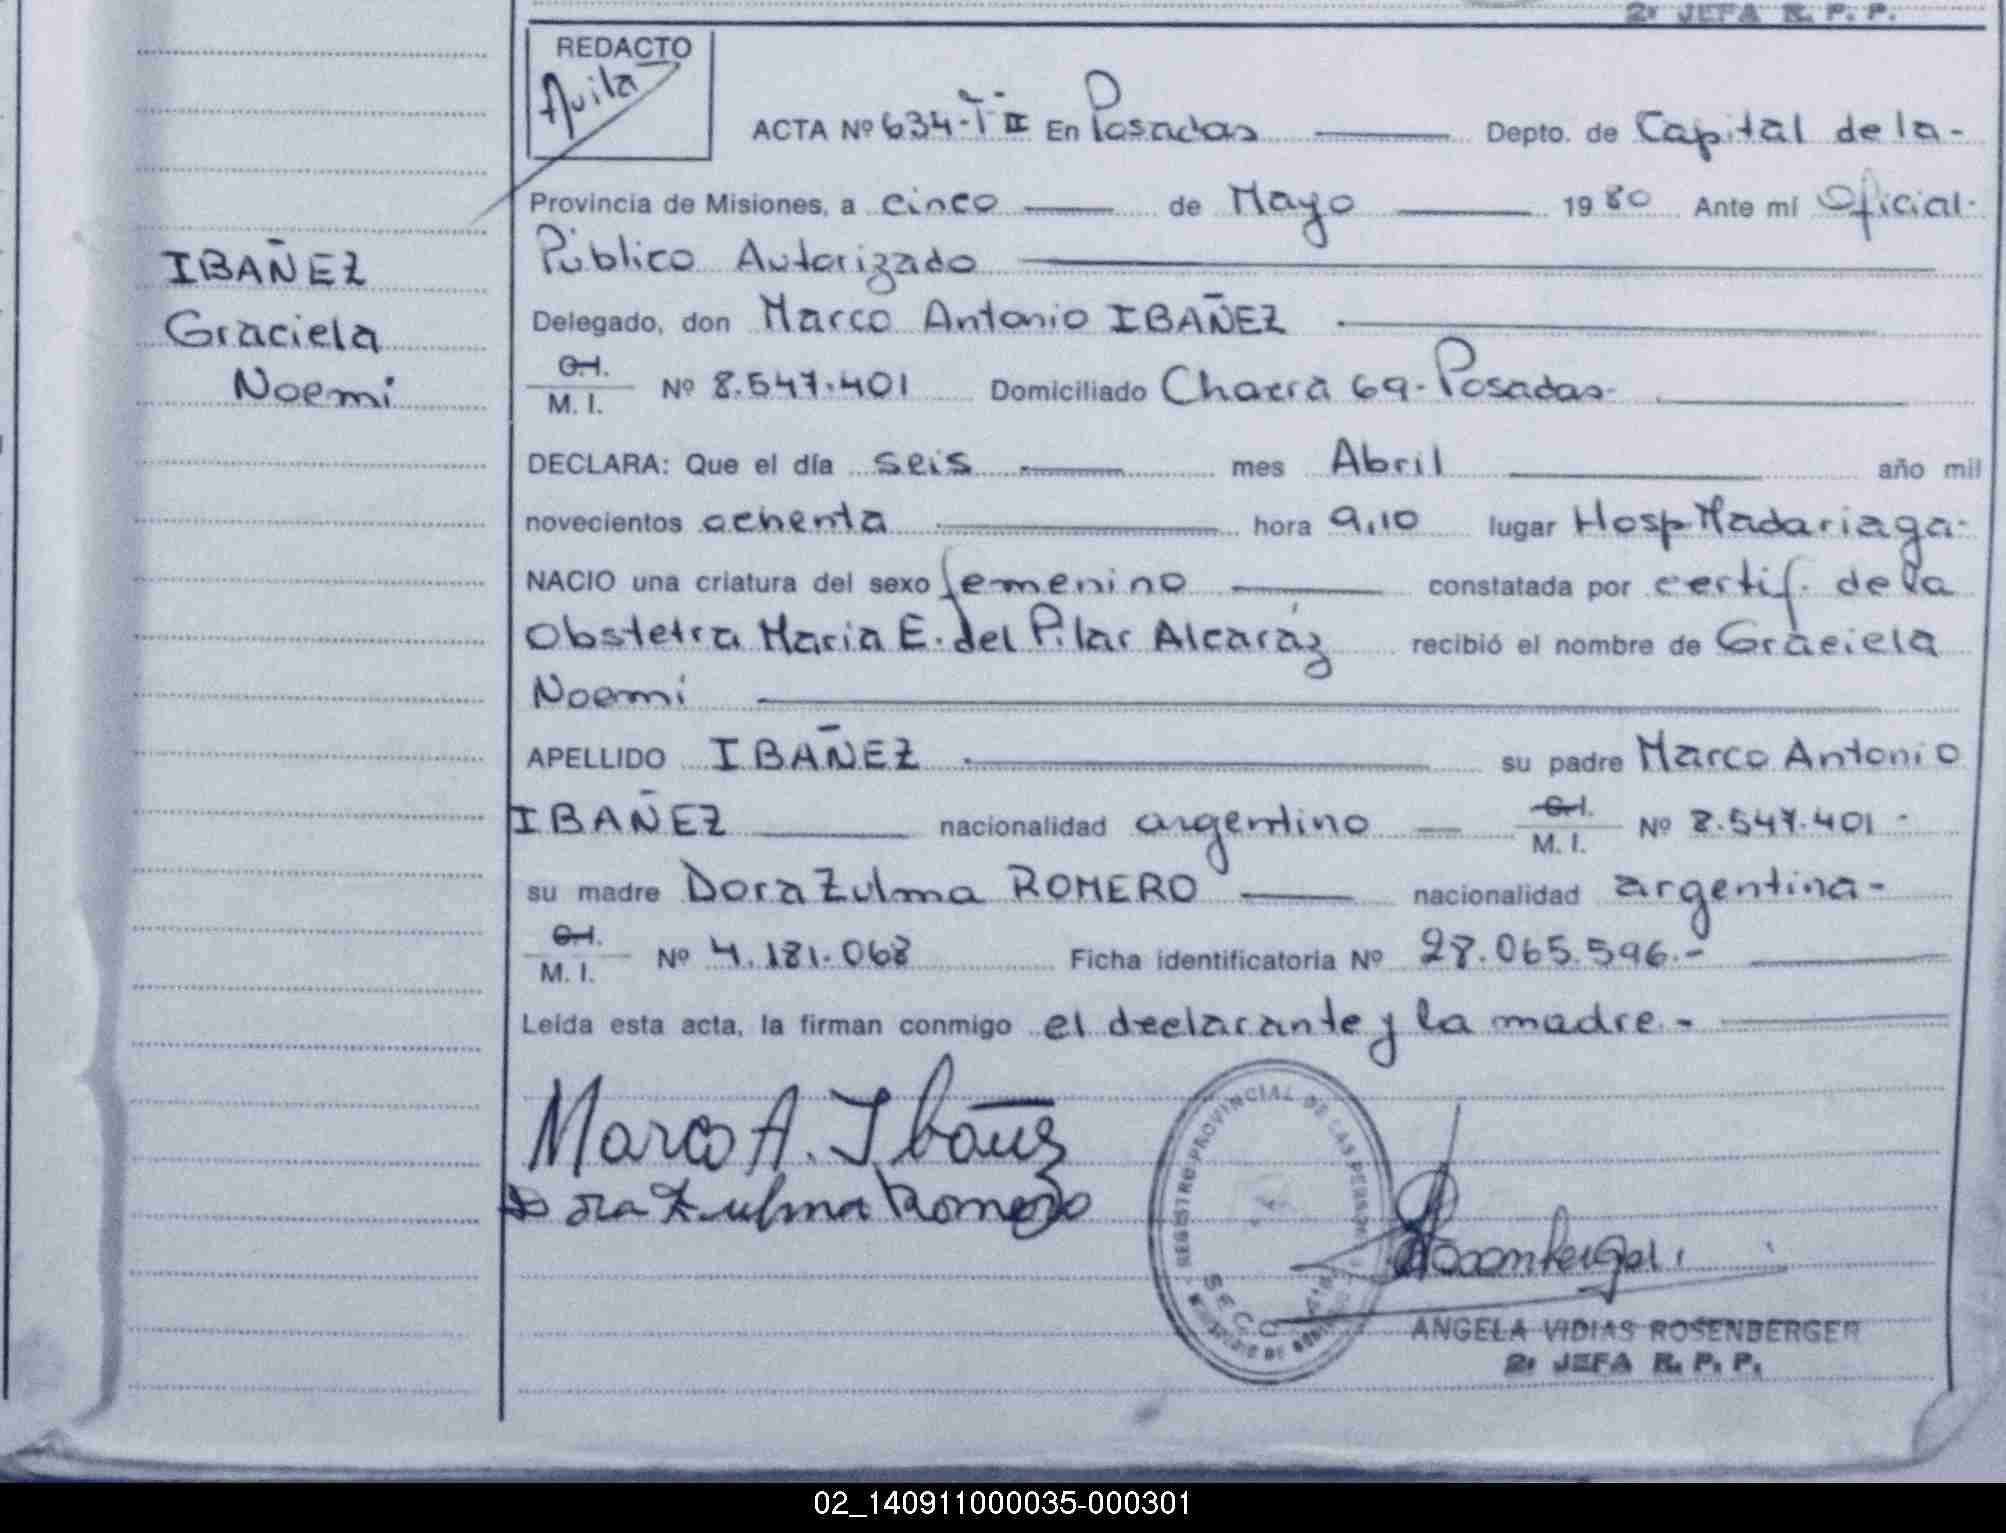 2º JEFA R. P. P.
REDACTO
Avila
ACTA Nº 634-Tº II En Posadas Depto. de Capital de la-
Provincia de Misiones, a cinco de Mayo 1980 Ante mí Oficial-
Público Autorizado
IBAÑEZ
Graciela
Noemi
Delegado, don Marco Antonio IBAÑEZ
C.I.
M. I. Nº 8.547.401 Domiciliado Chacra 69-Posadas-
DECLARA: Que el día seis mes Abril año mil
novecientos ochenta hora 9,10 lugar Hosp Madariaga-
NACIO una criatura del sexo femenino constatada por certif. de la
Obstetra Maria E. del Pilar Alcaráz recibió el nombre de Graciela
Noemi
APELLIDO IBAÑEZ su padre Marco Antonio
IBAÑEZ nacionalidad argentino C.I.
M. I. Nº 8.547.401-
su madre Dora Zulma ROMERO nacionalidad argentina-
C.I.
M. I. Nº 4.181.068 Ficha identificatoria Nº 28.065.596.-
Leída esta acta, la firman conmigo el declarante y la madre.-
Marco A. Ibañez
Dora Zulma Romero
REGISTRO PROVINCIAL DE LAS PERSONAS
SECC
ANGELA VIDIAS ROSENBERGER
2º JEFA R. P. P.
02_140911000035-000301